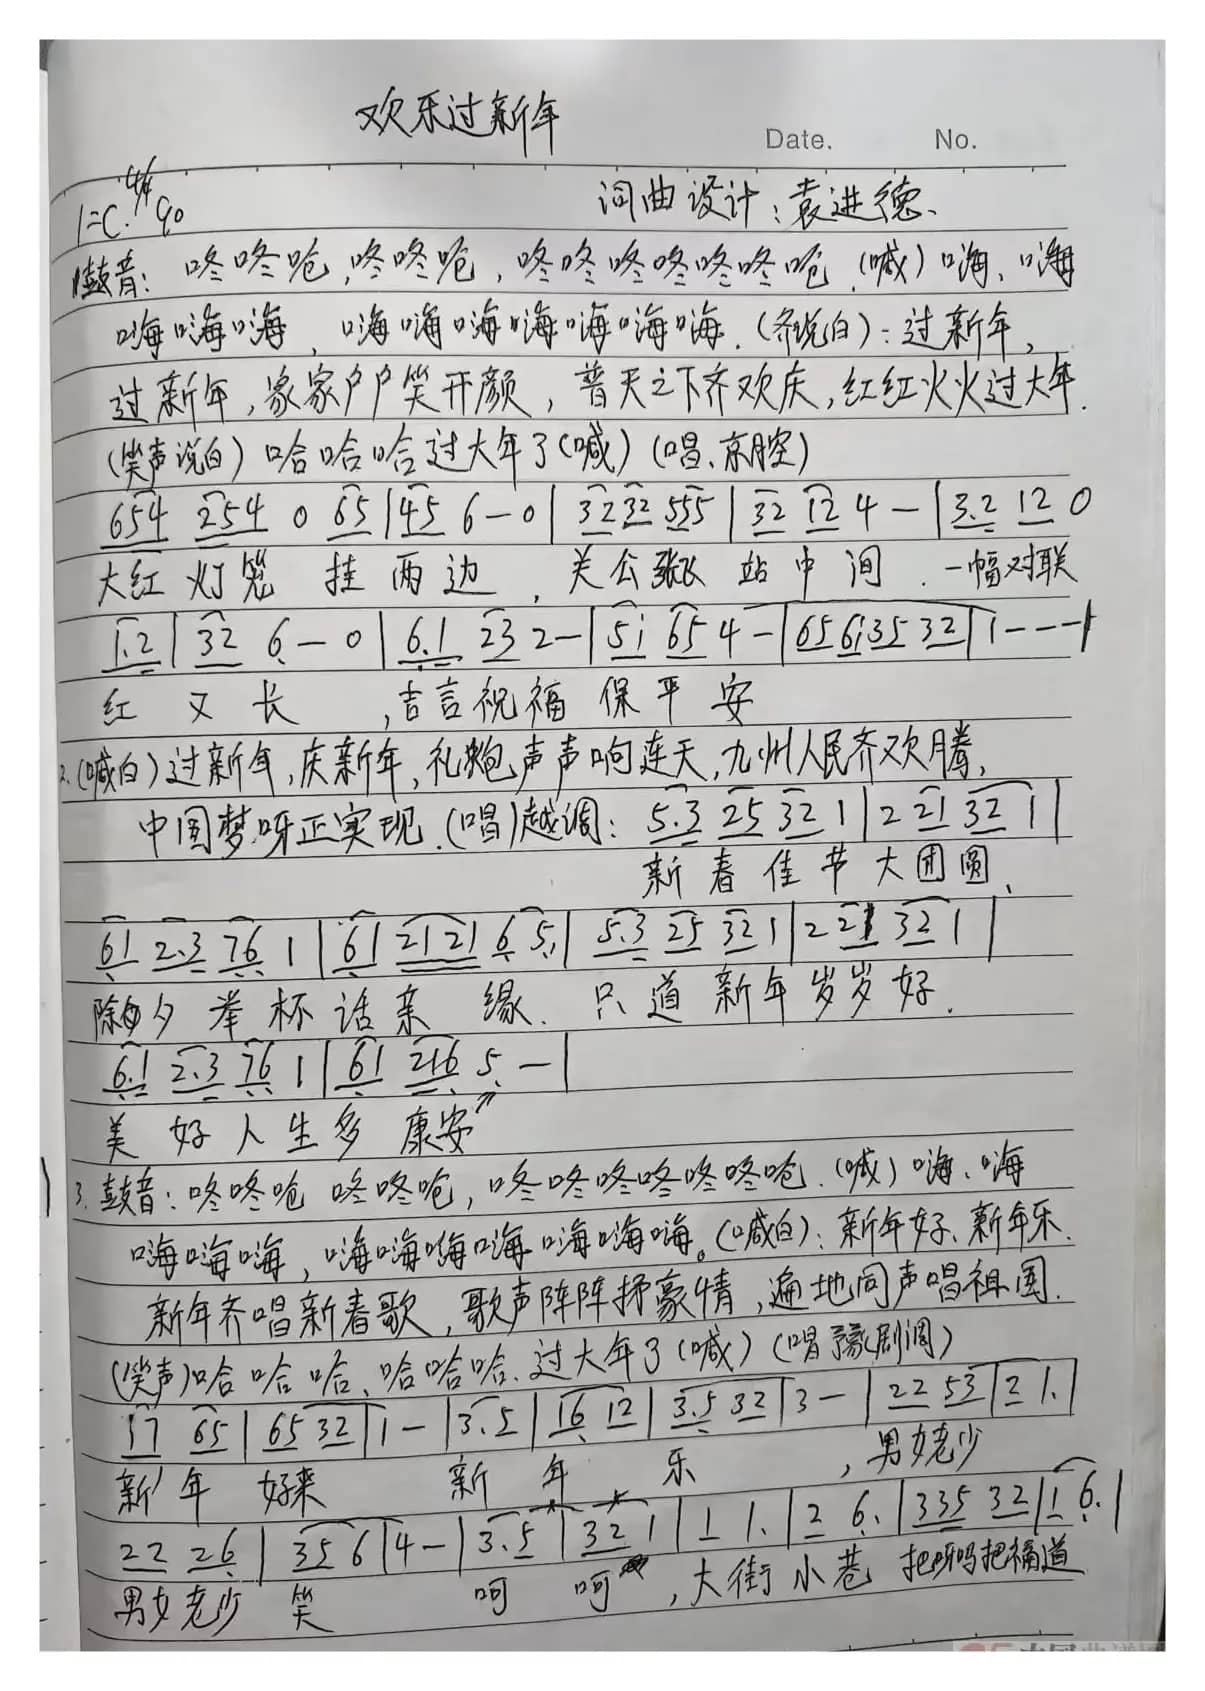 欢乐过新年
Date. No.
1=C. 4/4 90 词曲设计:袁进德、
1鼓音: 咚咚呛,咚咚呛,咚咚咚咚咚咚呛.(喊)嗨、嗨
嗨嗨嗨、嗨嗨嗨嗨嗨嗨嗨.(齐说白):过新年,
过新年,家家户户笑开颜,普天之下齐欢庆,红红火火过大年.
(笑声说白)哈哈哈过大年了(喊)(唱、京腔)
654 254 0 65|45 6-0|3232 555|32 12 4-|3.2 12 0
大红灯笼 挂两边,关公张飞站中间.一幅对联
1.2|32 6-0|6.1 23 2-|51 65 4-|65 61 35 32|1---|
红又长,吉言祝福保平安
2.(喊白)过新年,庆新年,礼炮声声响连天,九州人民齐欢腾,
中国梦呀正实现.(唱)越调: 5.3 25 32 1|2 21 32 1|
新春佳节大团圆、
61 2.3 76 1|61 2121 6 5|5.3 25 32 1|2 21 32 1|
除夕举杯话亲缘.只道新年岁岁好.
6.1 2.3 76 1|61 216 5 -|
美好人生多康安
3.鼓音:咚咚呛 咚咚呛,咚咚咚咚咚咚呛.(喊)嗨、嗨
嗨嗨嗨,嗨嗨嗨嗨嗨嗨嗨。(喊白):新年好、新年乐.
新年齐唱新春歌,歌声阵阵抒豪情,遍地同声唱祖国.
(笑声)哈哈哈、哈哈哈.过大年了(喊)(唱豫剧调)
17 65|65 32|1-|3.5|16 12|3.5 32|3-|22 53|2 1.|
新年好来 新年乐,男女老少
22 26|35 6|4-|3.5|32 1|1 1.|2 6.|335 32|1 6.|
男女老少笑 呵呵,大街小巷 把呀吗把福道